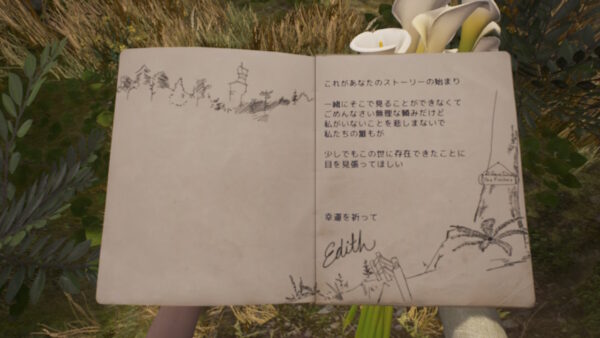 これがあなたのストーリーの始まり
一緒にそこで見ることができなくて
ごめんなさい無理な頼みだけど
私がいないことを悲しまないで
私たちの誰もが
少しでもこの世に存在できたことに
目を見張ってほしい
幸運を祈って
Edith